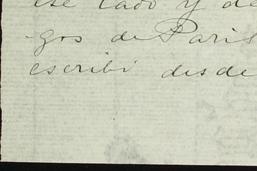 ese lado y de
-gos de Paris
escribí desde